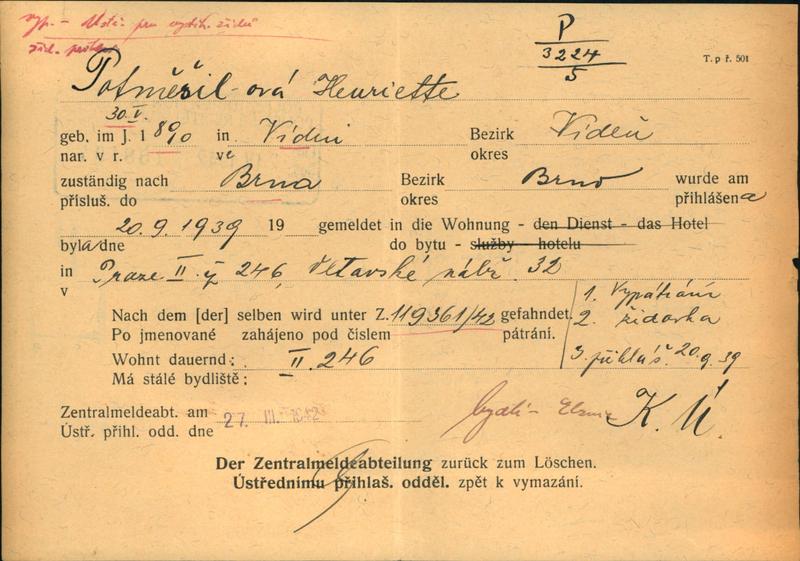 P
3224
5
T. p ř. 501
Potměšil-ová Henriette
30. V.
geb. im J. 1 890 in Vídni Bezirk Vídeň
nar. v r. ve okres
zuständig nach Brna Bezirk Brno wurde am
přísluš. do okres přihlášena
20. 9. 1939 19 gemeldet in die Wohnung - den Dienst - das Hotel
byla/dne do bytu - služby - hotelu
in Praze II. čp 246, Vltavské nábř. 32
v
Nach dem [der] selben wird unter Z. 119361/42 gefahndet.
Po jmenované zahájeno pod číslem pátrání.
1. Vypátrání
2. židovka
3. přihláš. 20. 9. 39
Wohnt dauernd: II. 246
Má stálé bydliště:
Zentralmeldeabt. am 27. III. 1942
Ústř. přihl. odd. dne
K. Ú.
Der Zentralmeldeabteilung zurück zum Löschen.
Ústřednímu přihlaš. odděl. zpět k vymazání.